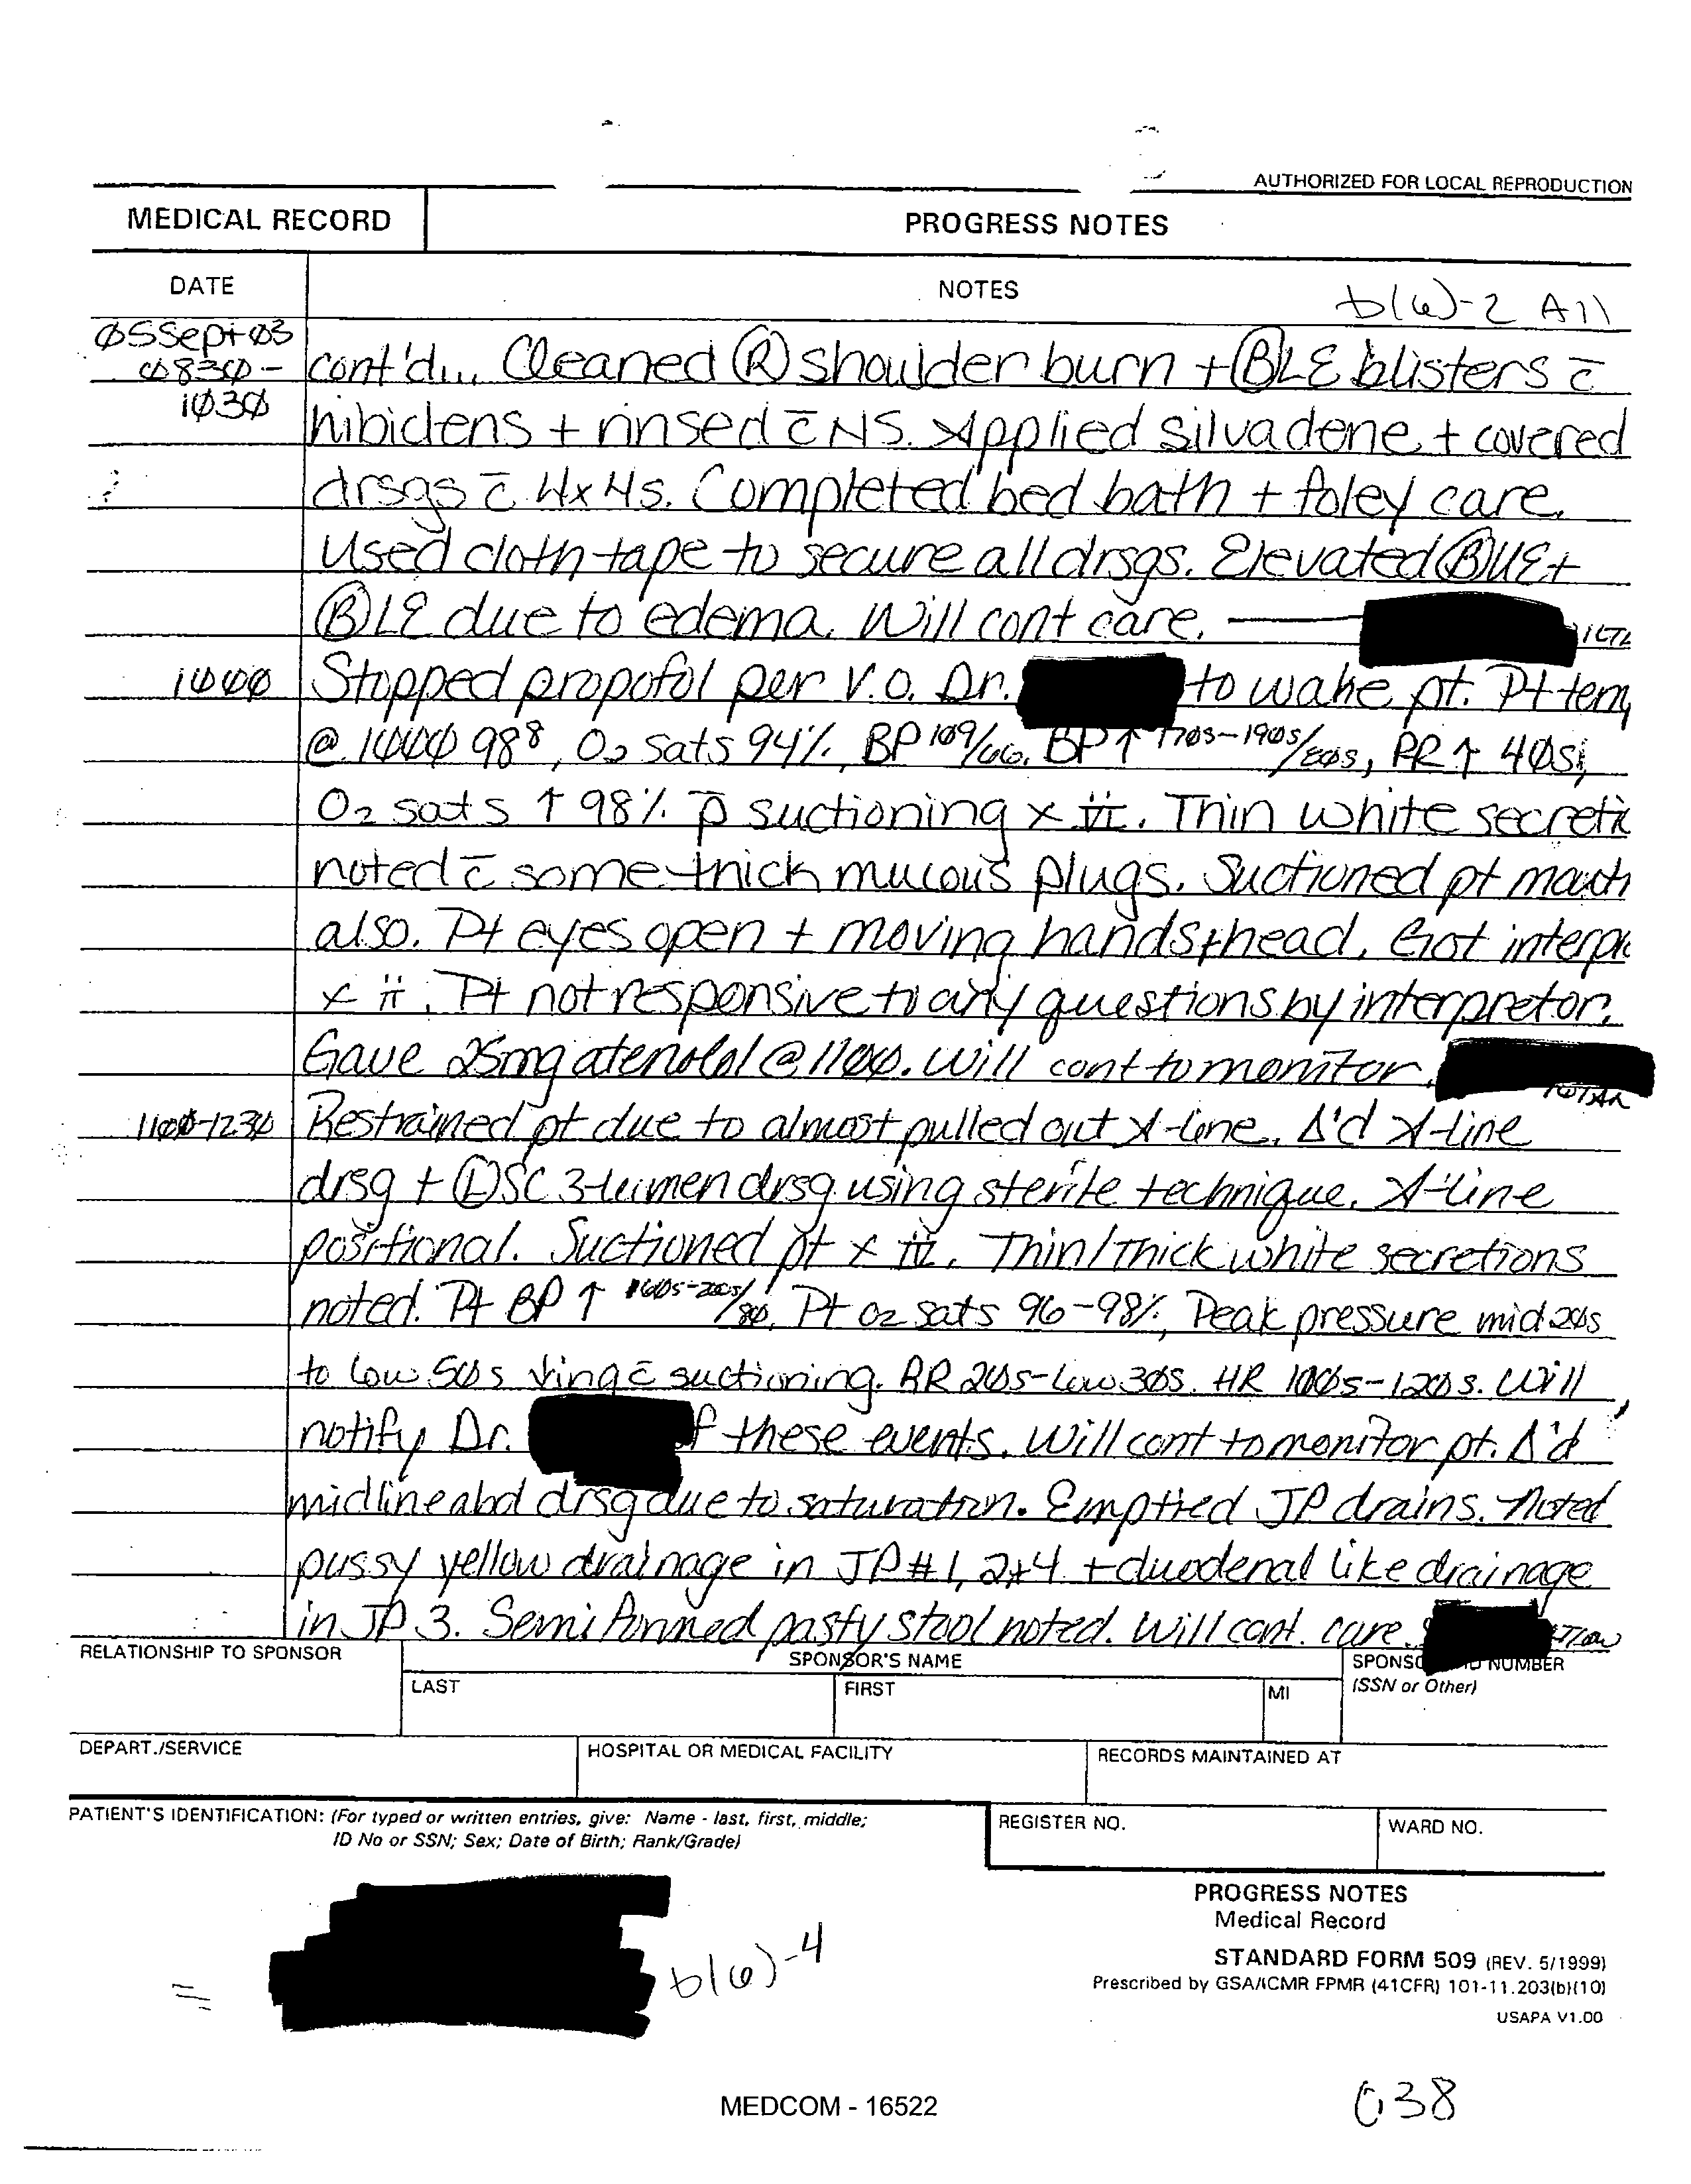 AUTHORIZED FOR LOCAL REPRODUCTION
MEDICAL RECORD PROGRESS NOTES
DATE NOTES b(6)-2 All
Ø5Sept Ø3
Ø83Ø-
1Ø3Ø
cont'd... Cleaned Ⓡ shoulder burn + ⒷLE blisters c̄
hibiclens + rinsed c̄ NS. Applied silvadene + covered
drsgs c̄ 4x4s. Completed bed bath + foley care.
Used cloth tape to secure all drsgs. Elevated ⒷUE +
ⒷLE due to edema. Will cont care. 1LT
1ØØØ Stopped propofol per V.O. Dr. to wake pt. Pt tem
@ 1ØØØ 98⁸, O2 sats 94%, BP 1Ø9/66. BP ↑ 17Øs-19Øs/8Øs, RR ↑ 4Øs,
O2 sats ↑ 98% p̄ suctioning x ii. Thin white secreti
noted c̄ some thick mucous plugs. Suctioned pt mouth
also. Pt eyes open + moving hands + head. Got interpr
x ii. Pt not responsive to any questions by interpretor.
Gave 25mg atenolol @ 11ØØ. Will cont to monitor.
11ØØ-123Ø Restrained pt due to almost pulled out A-line. Δ'd A-line
drsg + Ⓛ SC 3-lumen drsg using sterile technique. A-line
positional. Suctioned pt x iii. Thin/thick white secretions
noted. Pt BP ↑ 16Øs-2ØØs/8Ø. Pt O2 sats 96-98%, Peak pressure mid 2Øs
to low 5Øs c̄ suctioning. RR 2Øs-low 3Øs. HR 1ØØs-12Øs. Will
notify Dr. of these events. Will cont to monitor pt. Δ'd
midline abd drsg due to saturation. Emptied JP drains. Noted
pussy yellow drainage in JP #1, 2 + 4 + duodenal like drainage
in JP 3. Semi formed pasty stool noted. Will cont. care.
RELATIONSHIP TO SPONSOR SPONSOR'S NAME SPONSO NUMBER
LAST FIRST MI (SSN or Other)
DEPART./SERVICE HOSPITAL OR MEDICAL FACILITY RECORDS MAINTAINED AT
PATIENT'S IDENTIFICATION: (For typed or written entries, give: Name - last, first, middle;
ID No or SSN; Sex; Date of Birth; Rank/Grade)
REGISTER NO. WARD NO.
PROGRESS NOTES
Medical Record
STANDARD FORM 509 (REV. 5/1999)
Prescribed by GSA/ICMR FPMR (41CFR) 101-11.203(b)(10)
USAPA V1.00
b(6)-4
MEDCOM - 16522
038